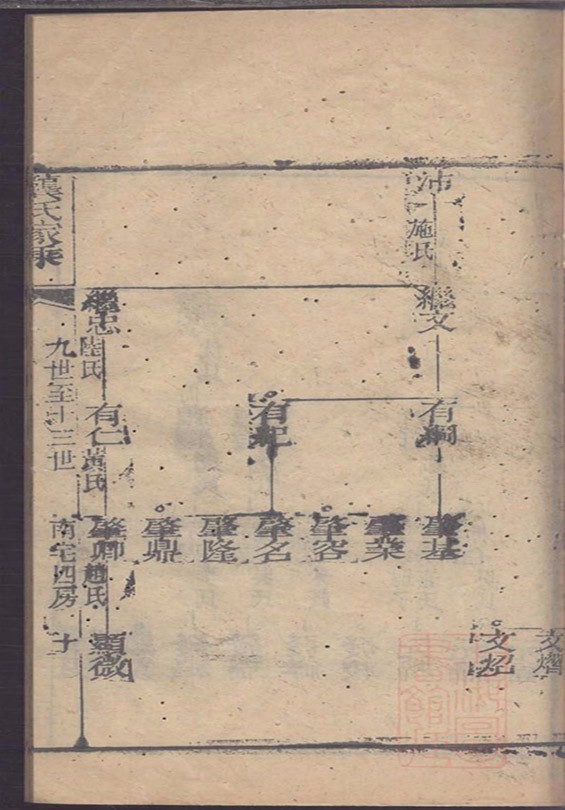 沛
施氏
繼文
有綱
肇基
肇業
肇容
肇名
肇隆
肇鼎
有紀
繼忠
陸氏
有仁
黃氏
肇卿
趙氏
顯微
文熠
文炤
龔氏家乘
九世至十三世
南宅四房
十